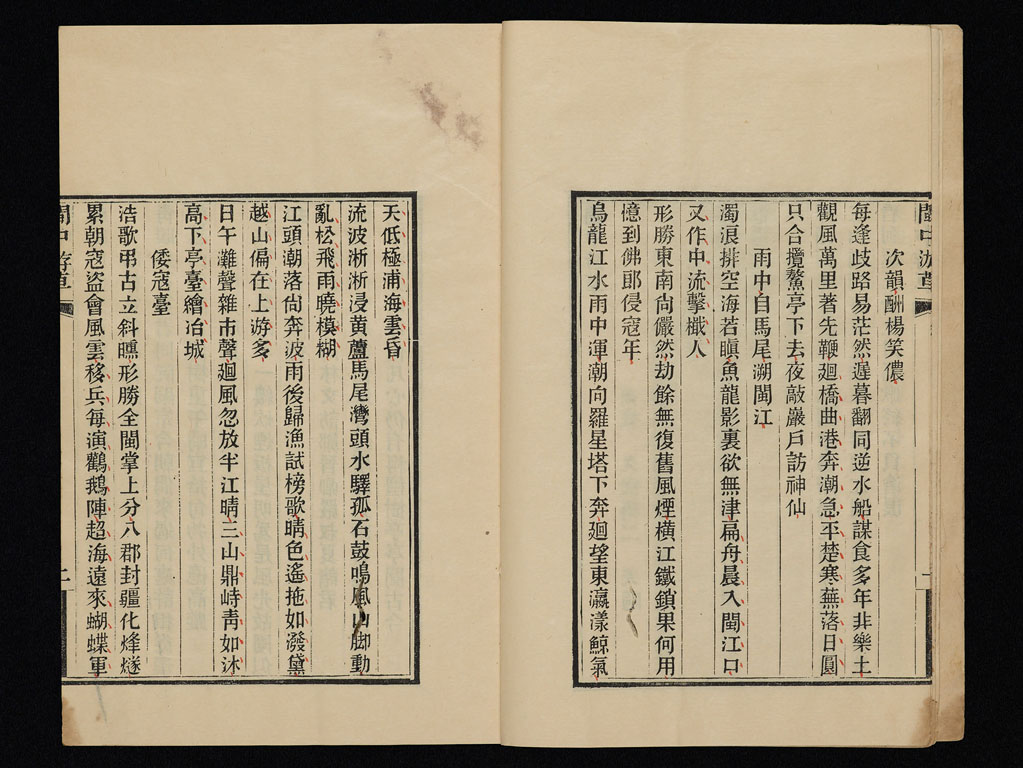 閩中游草
次韻酬楊笑儂
每逢歧路易茫然遲暮翻同逆水船謀食多年非樂土
觀風萬里著先鞭廻橋曲港奔潮急平楚寒蕪落日圓
只合攬鰲亭下去夜敲巖戶訪神仙
雨中自馬尾溯閩江
濁浪排空海若瞋魚龍影裏欲無津扁舟晨入閩江口
又作中流擊檝人
形勝東南尚儼然劫餘無復舊風煙橫江鐵鎖果何用
憶到佛郎侵寇年
烏龍江水雨中渾潮向羅星塔下奔廻望東瀛漾鯨氛
天低極浦海雲昏
流波淅淅浸黄蘆馬尾灣頭水驛孤石鼓鳴風山脚動
亂松飛雨曉模糊
江頭潮落尚奔波雨後歸漁試榜歌晴色遙拖如潑黛
越山偏在上游多
日午灘聲雜市聲廻風忽放半江晴三山鼎峙靑如沐
高下亭臺繪冶城
倭寇臺
浩歌弔古立斜曛形勝全閩掌上分八郡封疆化烽燧
累朝寇盜會風雲移兵每演鸛鵝陣超海遠來蝴蝶軍
閩中游草
二